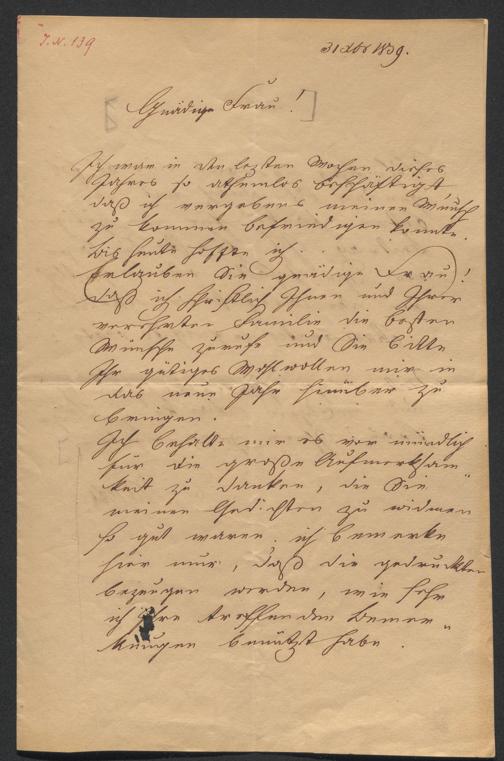 J. N. 139
31 Xbr 1839.
Gnädige Frau!
Ich war in den lezten Wochen dieses
Jahres so athemlos beschäftigt,
daß ich vergebens meinen Wunsch
zu kommen befriedigen konnte.
Bis heute hoffte ich.
Erlauben Sie gnädige Frau!
daß ich schriftlich Ihnen und Ihrer
verehrten Familie die besten
Wünsche zurufe und Sie bitte
Ihr gütiges Wohlwollen mir in
das neue Jahr hinüber zu
bringen.
Ich behalte mir es vor mündlich
für die große Aufmerksam
keit zu danken, die Sie
meinen Gedichten zu widmen
so gut waren. ich bemerke
hier nur, daß die gedruckten
bezeugen werden, wie sehr
ich Ihre treffenden Bemer-
kungen benützt habe.